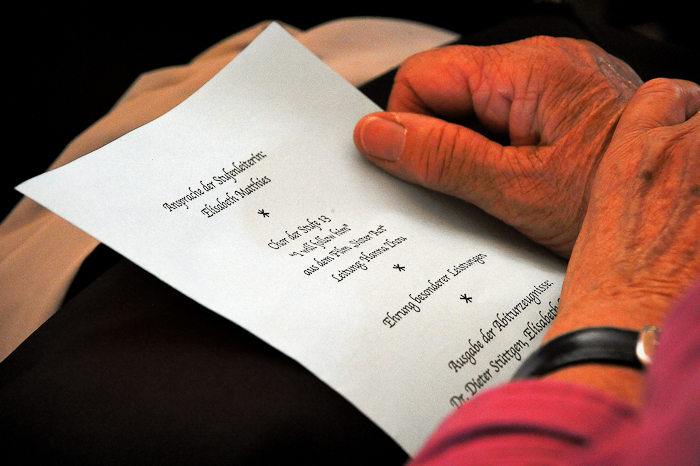 Ansprache der Stufenleiterin:
Elisabeth Matthies
*
Chor der Stufe 13
"I will follow him"
aus dem Film „Sister Act“
Leitung: Hanna
*
Ehrung besonderer Leistungen
*
Ausgabe der Abiturzeugnisse:
Dr. Dieter Stüttgen, Elisabeth